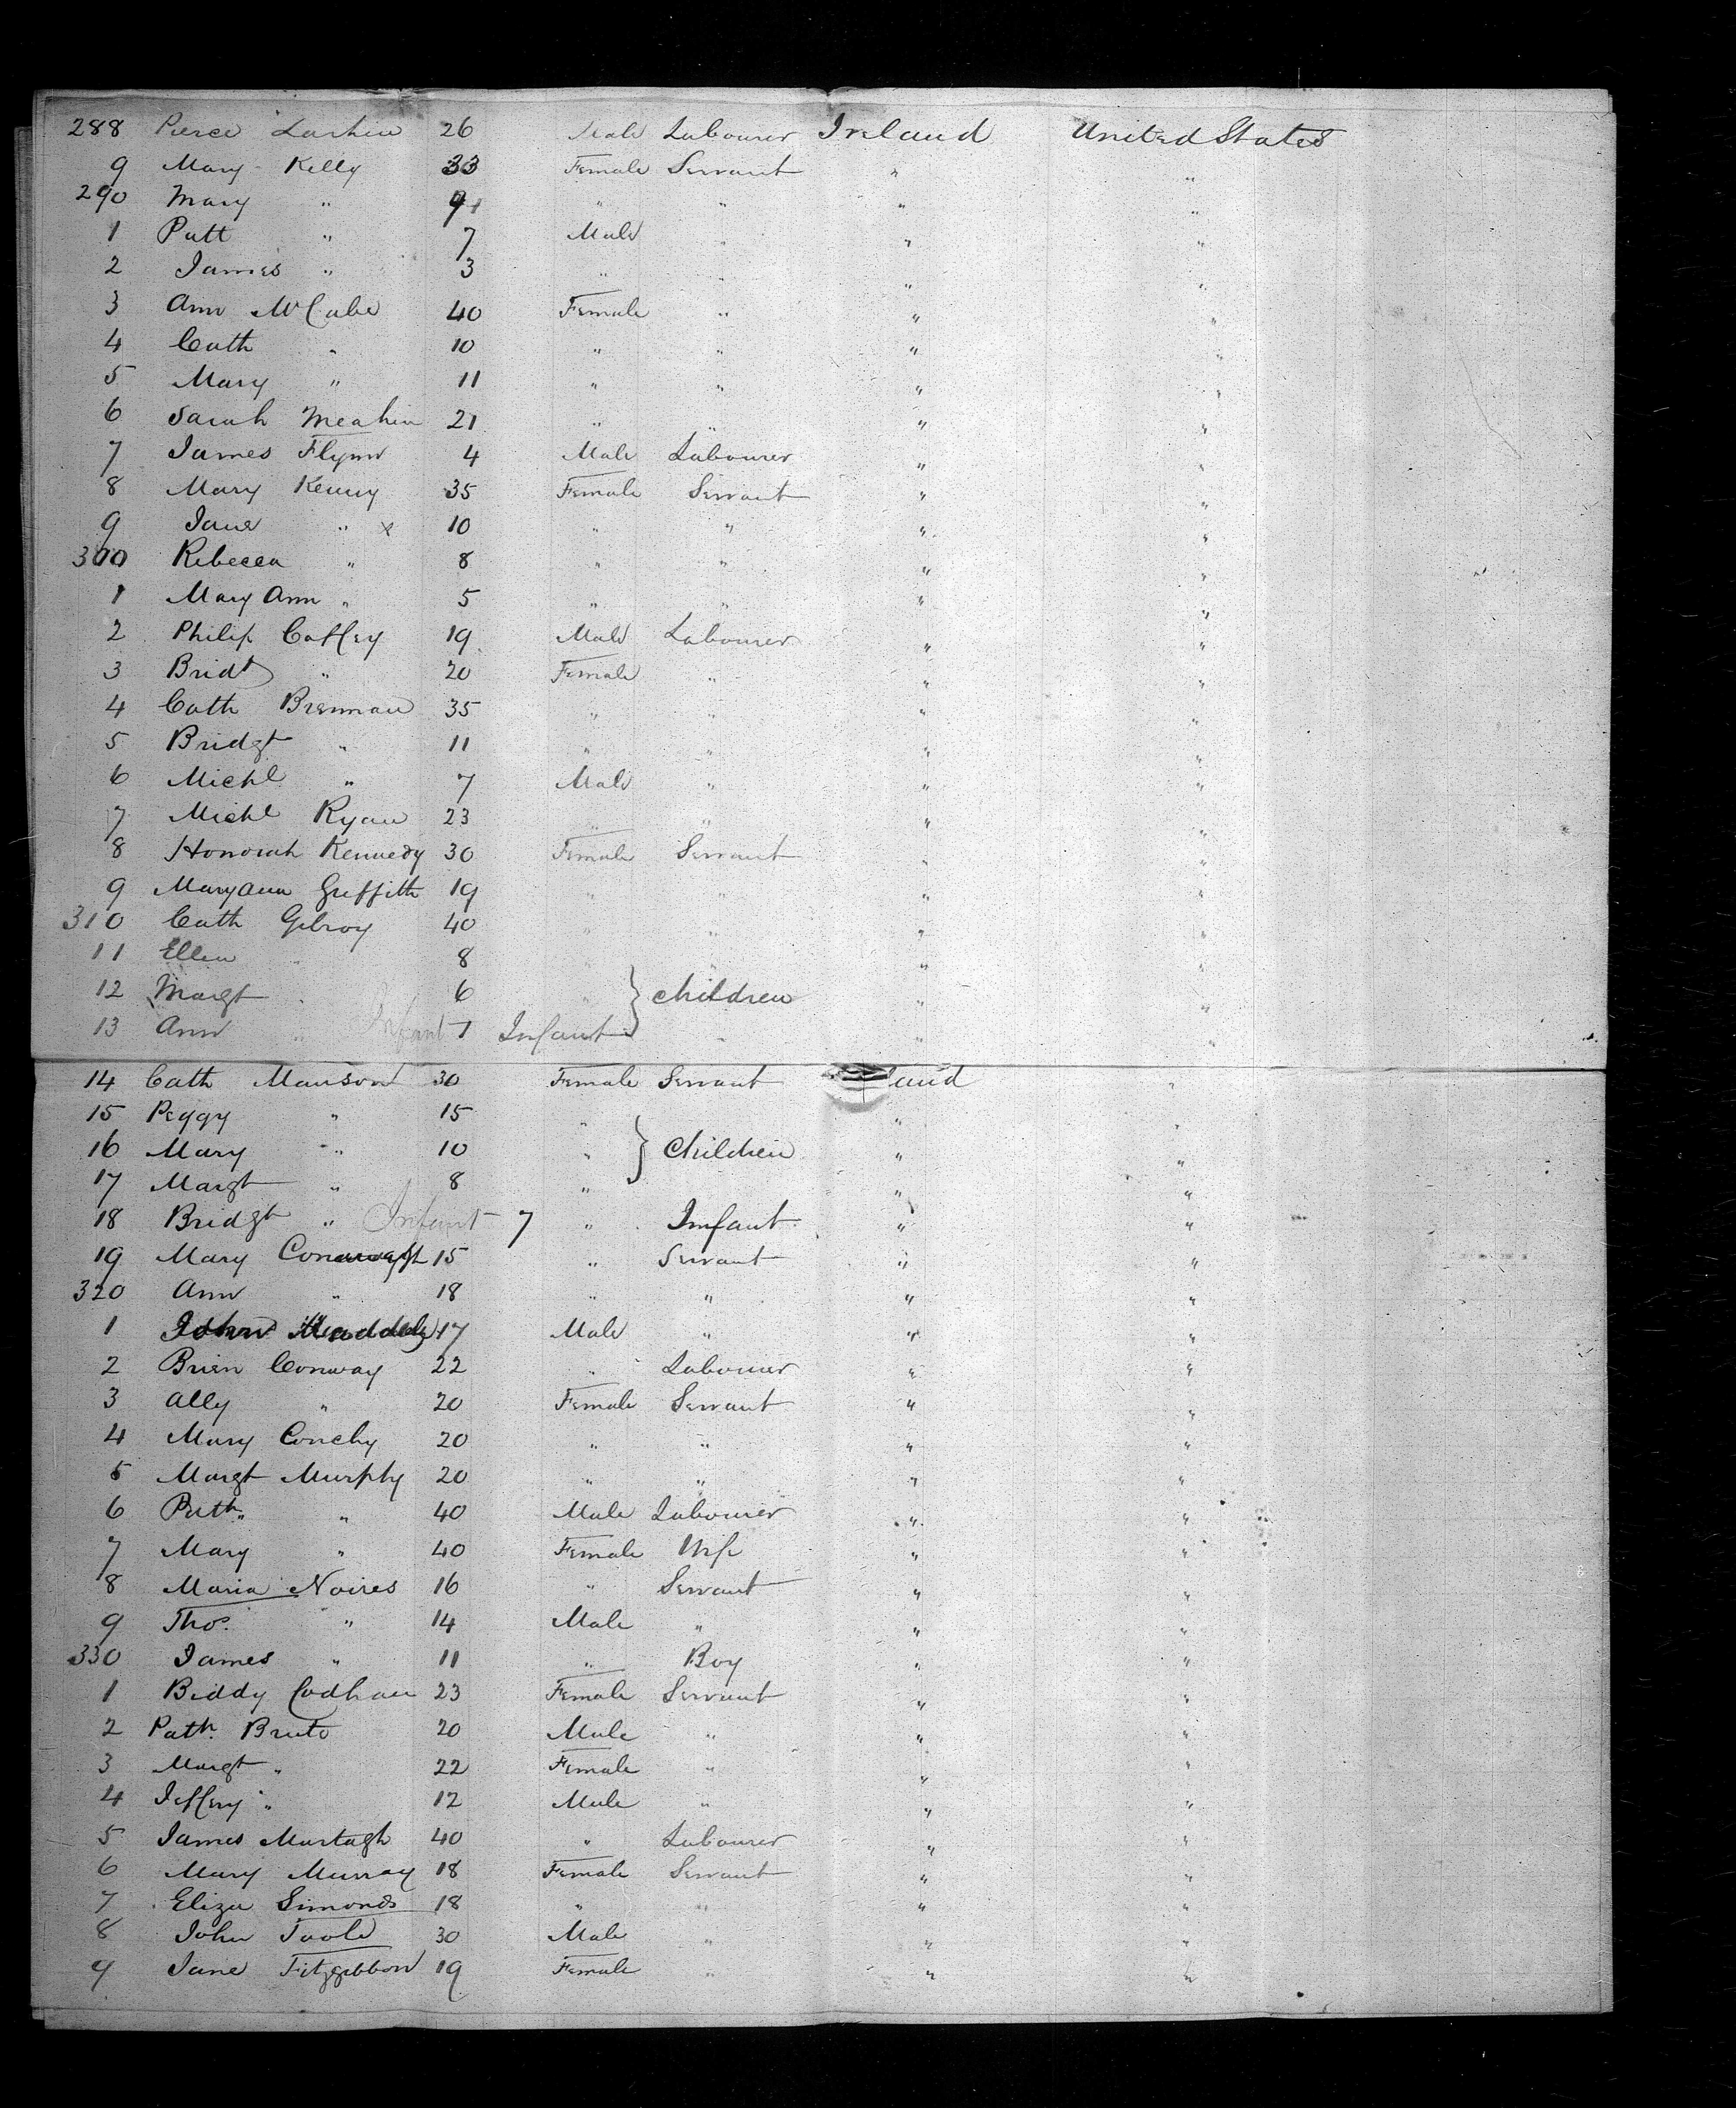 288 Pierce Larkin 26 Male Labourer Ireland United States
9 Mary Kelly 33 Female Servant " "
290 Mary " 9 " " " "
1 Patt " 7 Male " " "
2 James " 3 " " " "
3 Ann McCabe 40 Female " " "
4 Cath " 10 " " " "
5 Mary " 11 " " " "
6 Sarah Meahin 21 " " " "
7 James Flynn 4 Male Labourer " "
8 Mary Kenny 35 Female Servant " "
9 Jane " x 10 " " " "
300 Rebecca " 8 " " " "
1 Mary Ann " 5 " " " "
2 Philip Caffey 19 Male Labourer " "
3 Bridt " 20 Female " " "
4 Cath Brennan 35 " " " "
5 Bridgt " 11 " " " "
6 Michl " 7 Male " " "
7 Michl Ryan 23 " " " "
8 Honorah Kennedy 30 Female Servant " "
9 Maryann Griffith 19 " " " "
310 Cath Gilroy 40 " " " "
11 Ellen " 8 " " " "
12 Margt " 6 " } Children " "
13 Ann " Infant 1 Infant " " "
14 Cath Manson 30 Female Servant land "
15 Peggy " 15 " " "
16 Mary " 10 " } Children " "
17 Margt " 8 " " "
18 Bridgt " Infant 7 " Infant " "
19 Mary 15 " Servant " "
320 Ann " 18 " " " "
1 John 17 Male " " "
2 Brien Conway 22 " Labourer " "
3 Ally " 20 Female Servant " "
4 Mary Conchy 20 " " " "
5 Margt Murphy 20 " " " "
6 Patk " 40 Male Labourer " "
7 Mary " 40 Female Wife " "
8 Maria Noires 16 " Servant " "
9 Thos. " 14 Male " " "
330 James " 11 " Boy " "
1 Biddy Codhan 23 Female Servant " "
2 Patk. Bruto 20 Male " " "
3 Margt " 22 Female " " "
4 Jeffery " 12 Male " " "
5 James Murtagh 40 " Labourer " "
6 Mary Murray 18 Female Servant " "
7 Eliza Simonds 18 " " " "
8 John Toole 30 Male " " "
9 Jane Fitzgibbon 19 Female " " "